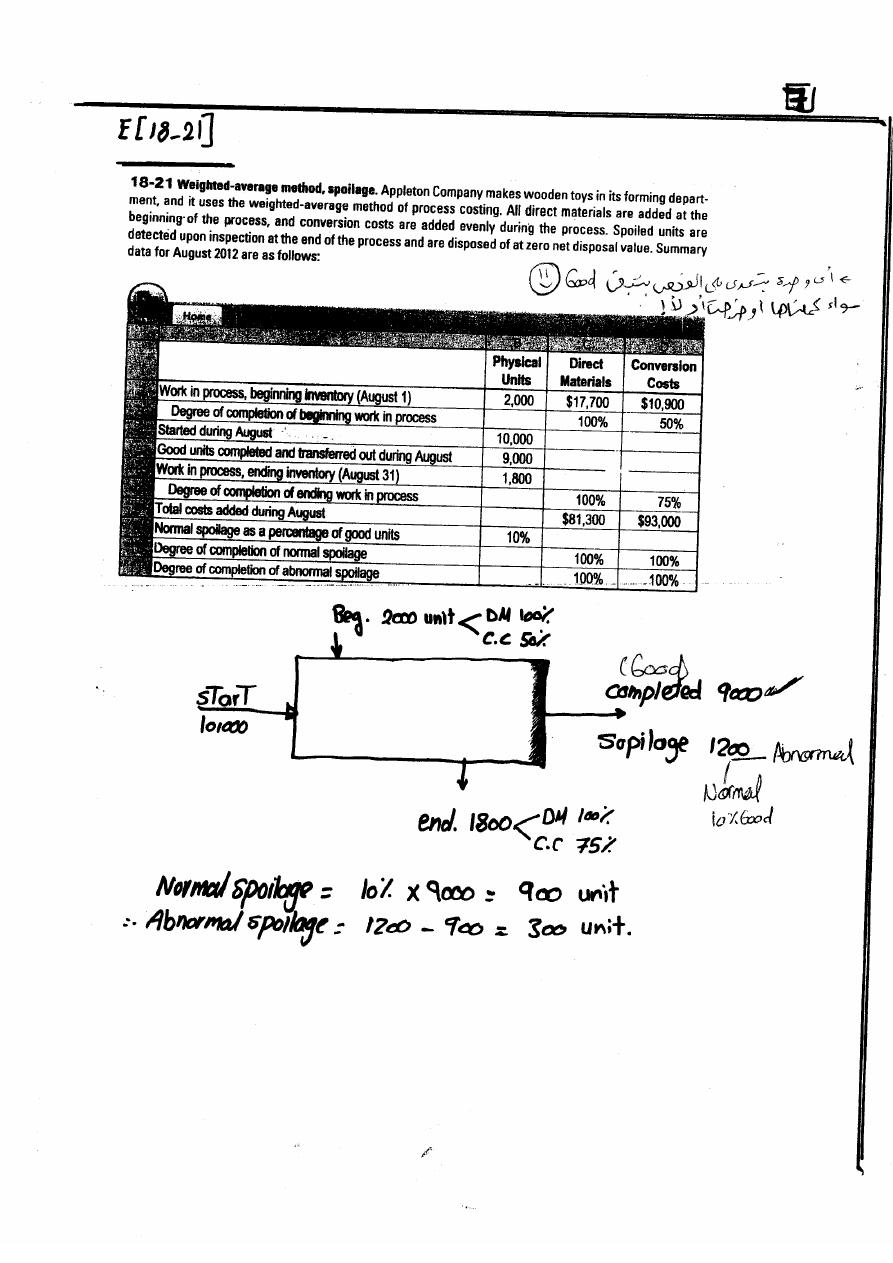 E[18-21]
18-21 Weighted-average method, spoilage. Appleton Company makes wooden toys in its forming depart-
ment, and it uses the weighted-average method of process costing. All direct materials are added at the
beginning of the process, and conversion costs are added evenly during the process. Spoiled units are
detected upon inspection at the end of the process and are disposed of at zero net disposal value. Summary
data for August 2012 are as follows:
أى وحدة بتعدى على الفحص بتبقى Good
سواء كملناها او خرجت أو لأ!
Home
Physical Units Direct Materials Conversion Costs
Work in process, beginning inventory (August 1) 2,000 $17,700 $10,900
Degree of completion of beginning work in process 100% 50%
Started during August 10,000
Good units completed and transferred out during August 9,000
Work in process, ending inventory (August 31) 1,800
Degree of completion of ending work in process 100% 75%
Total costs added during August $81,300 $93,000
Normal spoilage as a percentage of good units 10%
Degree of completion of normal spoilage 100% 100%
Degree of completion of abnormal spoilage 100% 100%
Beg. 2000 unit DM 100%
C.C 50%
(Good)
STarT completed 9000
10,000
Sopilage 1200 Abnormal
Normal
10% Good
end. 1800 DM 100%
C.C 75%
Normal Spoilage = 10% x 9000 = 900 unit
∴ Abnormal spoilage = 1200 - 900 = 300 unit.